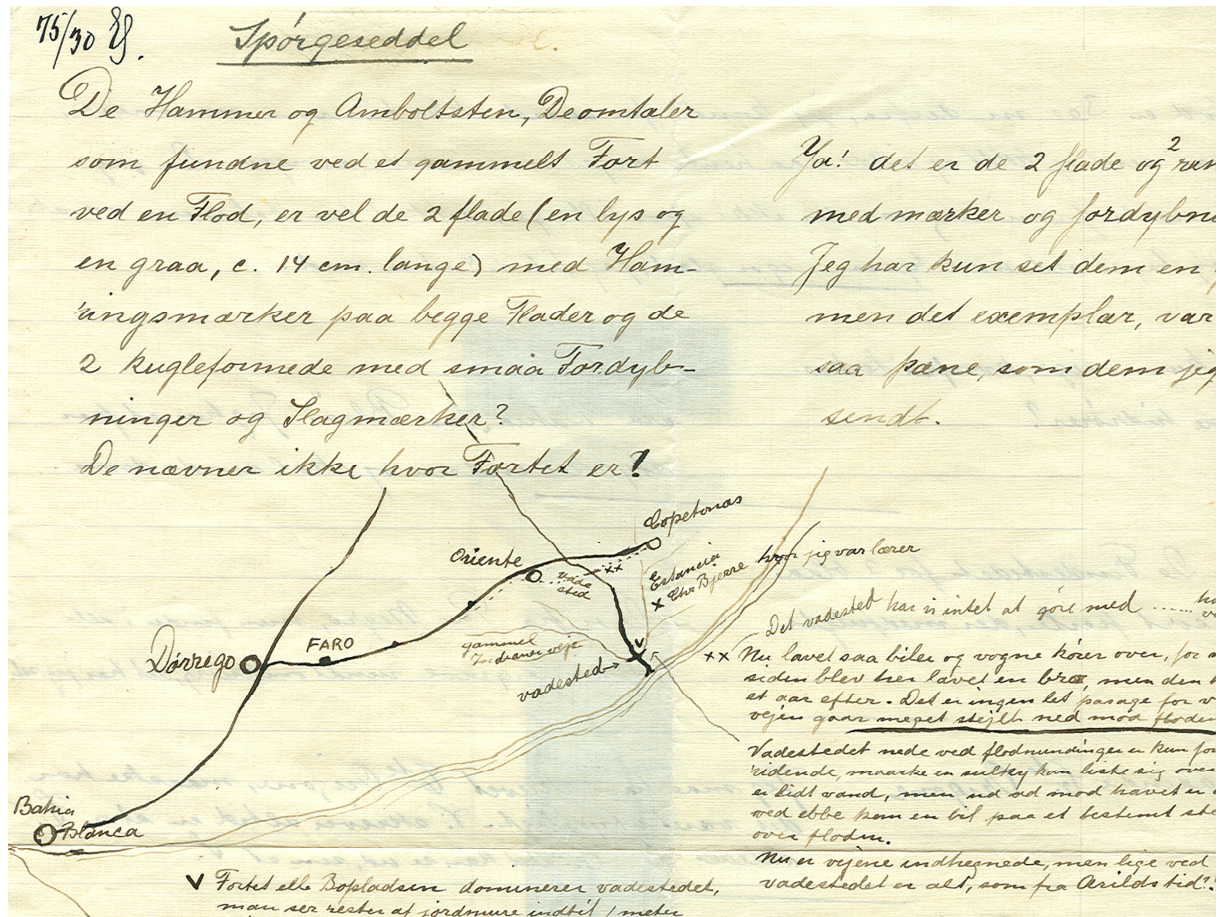 75/30
Spørgeseddel
De Hammer og Amboltsten, De omtaler
som fundne ved et gammelt Fort
ved en Flod, er vel de 2 flade (en lys og
en graa, c. 14 cm. lange) med Ham-
ringsmærker paa begge Flader og de
2 kugleformede med smaa Fordyb-
ninger og Slagmærker?
De nævner ikke hvor Fortet er?
Ja! det er de 2 flade og 2
med mærker og
Jeg har kun set dem en
men det exemplar, var
saa pæne, som dem jeg
sendt.
Copetonas
Oriente
vade
sted
xx
Estancia
x Chr Bjerre hvor jeg var lærer
Dorrego
FARO
gammel
Indianer veje
vadested→
v
Bahia
Blanca
Det vadested har vi intet at göre med
xx Nu lavet saa biler og vogne kører over, for
siden blev her lavet en bro, men den
et aar efter. Det er ingen let pasage for
vejen gaar meget stejlt ned mod floden
Vadestedet nede ved flodmundingen er kun for
ridende, maaske en sulky kan liste sig over
er lidt vand, men ud mod havet er
ved ebbe kan en bil paa et bestemt
over floden.
Nu er vejene indhegnede, men lige ved
vadestedet er alt, som fra Arilds tid!
v Fortet elle Bopladsen dominerer vadestedet,
man ser rester af jordmure indtil 1 meter